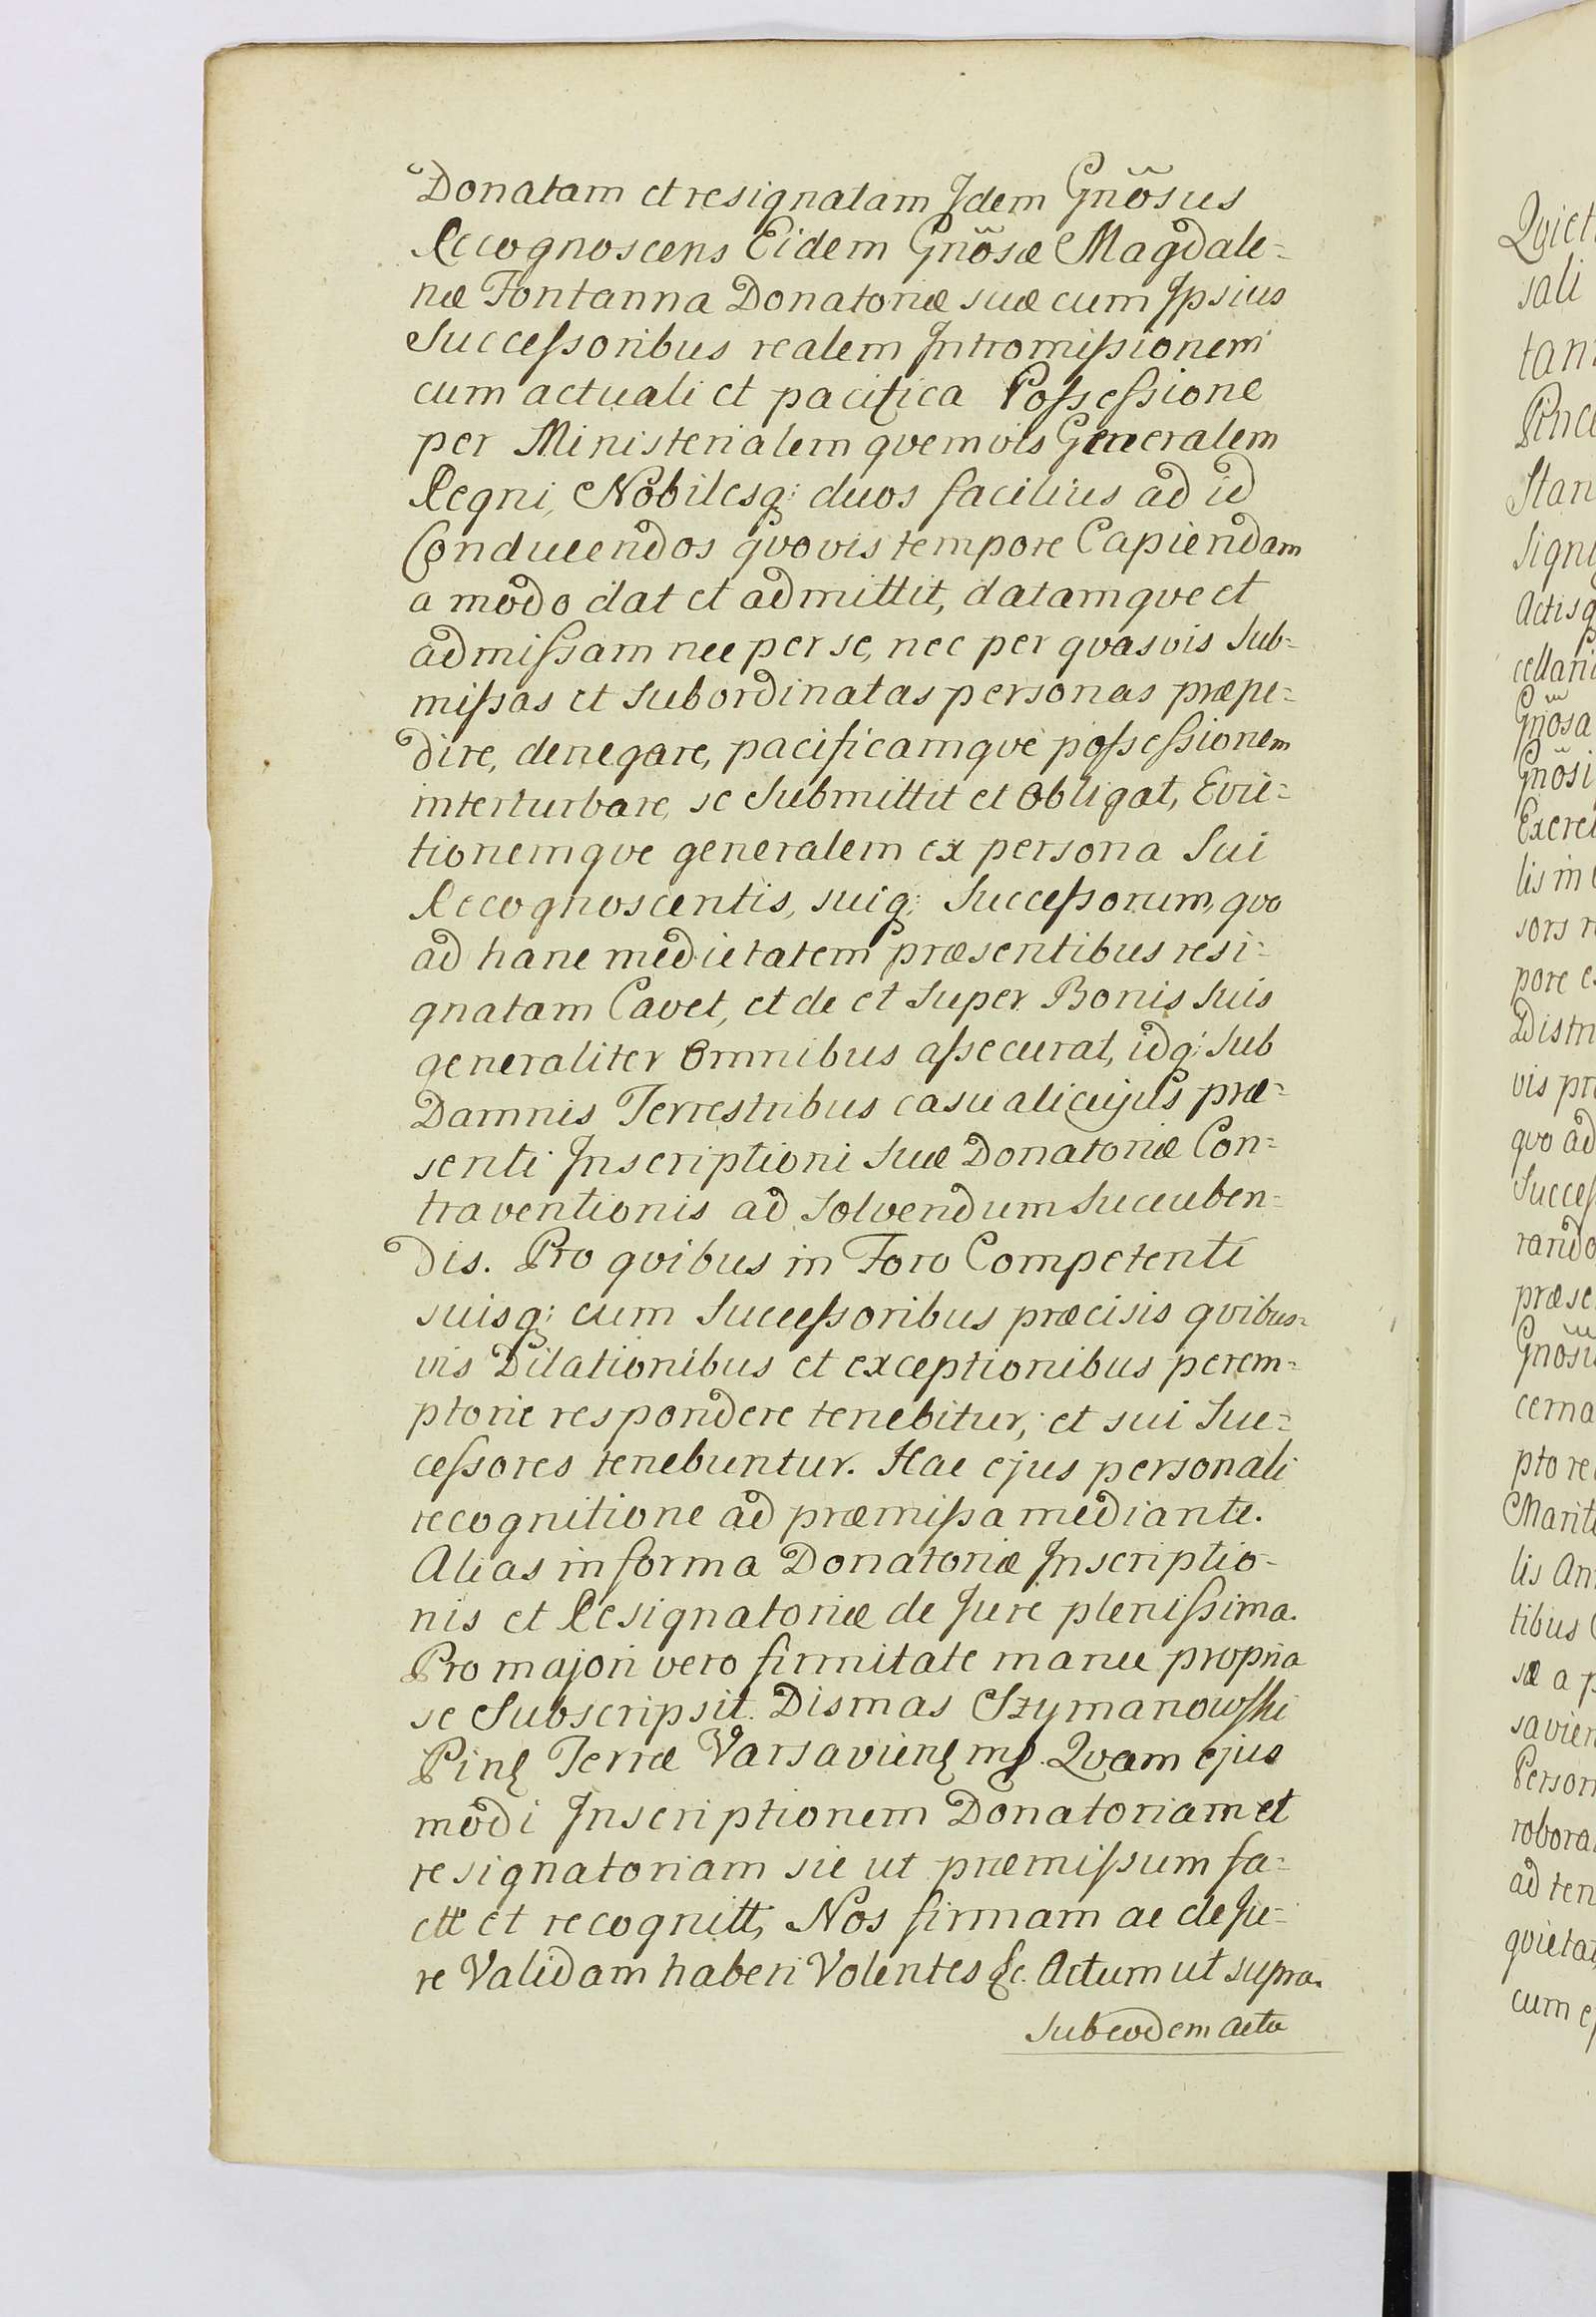 Donatam et resignatam Idem Gnõsus
Recognoscens Eidem Gnõsæ Magdale=
næ Fontanna Donatoriæ suæ cum Ipsius
Successoribus realem Intromissionem
cum actuali et pacifica Possessione
per Ministerialem qvemvis Generalem
Regni, Nobilesq; duos facilius ad id
Conducendos qvovis tempore Capiendam
a modo dat et admittit, datamqve et
admissam nec per se, nec per qvasvis Sub=
missas et Subordinatas personas præpe=
dire, denegare, pacificamqve possessionem
interturbare, se Submittit et Obligat, Evic=
tionemqve generalem ex persona Sui
Recognoscentis, suiq; Successorum, qvo
ad hanc medietatem præsentibus resi=
gnatam Cavet, et de et Super Bonis Suis
generaliter Omnibus assecurat, idq; Sub
Damnis Terrestribus casu alicujus præ=
senti Inscriptioni Suæ Donatoriæ Con=
traventionis ad Solvendum Succuben=
dis. Pro qvibus in Foro Competenti
suisq; cum Successoribus præcisis qvibus=
vis Dilationibus et exceptionibus perem=
ptorie respondere tenebitur, et sui Suc=
cessores tenebuntur. Hac ejus personali
recognitione ad præmissa mediante.
Alias in forma Donatoriæ Inscriptio=
nis et Resignatoriæ de Jure plenissima.
Pro majori vero firmitate manu propria
se Subscripsit. Dismas Szymanowski
Pinc̨ Terræ Varsavienc̨ mp. Qvam ejus
modi Inscriptionem Donatoriam et
resignatoriam sic ut præmissum fa=
ctt et recognitt, Nos firmam ac de Ju=
re Validam haberi Volentes &c. Actum ut supra.
Sub eodem Actu
Qviet
sali
Stan
Signi
Gnõsa
Gnõsi
lis in
sors r
Distri
vis pr
qvo ad
Succes
rando
præse
Gnõsu
cerna
pto re
Marit
lis An
tibus
sæ a p
savien
Person
robora
ad ten
qvieta
cum e